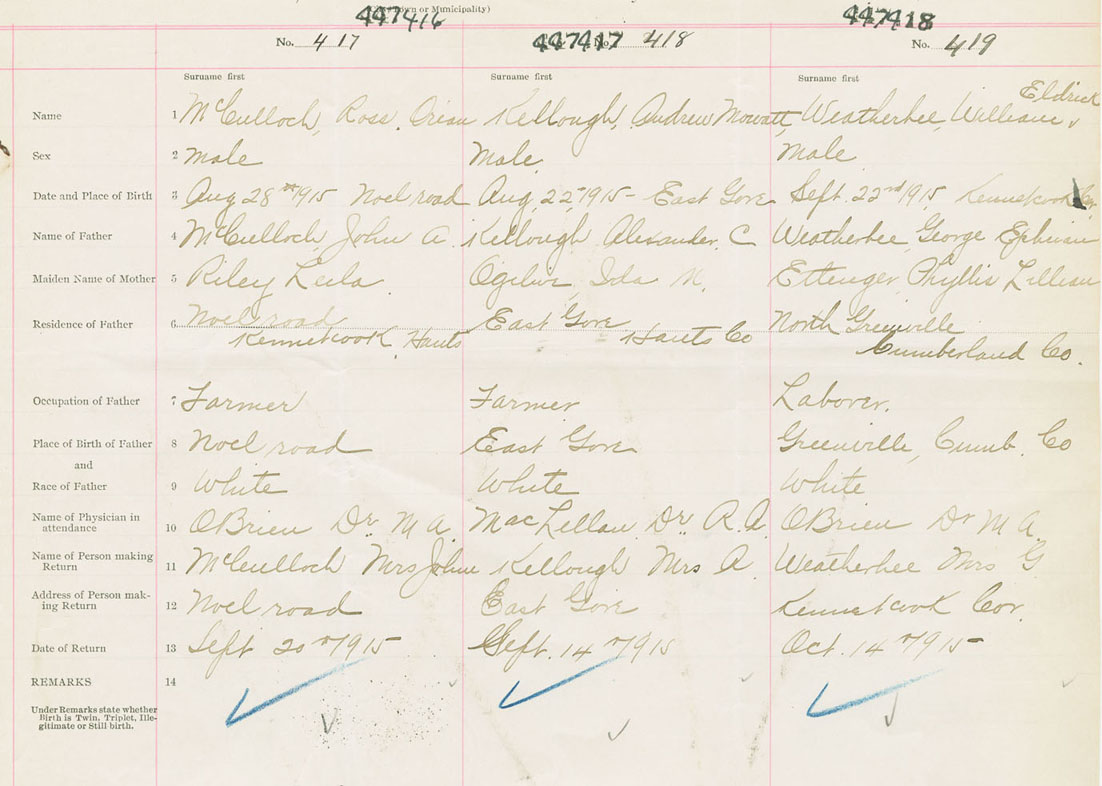 (City, Town or Municipality)
447416 447418
No. 417 447417 No. 418 No. 419
Surname first Surname first Surname first
Eldrick
Name 1 McCulloch, Ross, Orian Kellough, Andrew Mowatt, Weatherbee, William
Sex 2 male Male. Male
Date and Place of Birth 3 Aug 28th 1915 Noel road Aug. 22, 1915 - East Gore Sept. 22nd 1915 Kennetcook Cor.
Name of Father 4 McCulloch John A Kellough Alexander. C Weatherbee George Ephriam
Maiden Name of Mother 5 Riley Leila Ogilvie, Ida M. Ettenger Phyllis Lillian
Residence of Father 6 Noel road East Gore North Greenville
Kennetcook, Hants Hants Co Cumberland Co.
Occupation of Father 7 Farmer Farmer Laborer.
Place of Birth of Father 8 Noel road East Gore Greenville, Cumb. Co
and
Race of Father 9 White White White
Name of Physician in
attendance 10 OBrien Dr. M A. MacLellan Dr. R. A. OBrien Dr M A.
Name of Person making
Return 11 McCulloch Mrs John Kellough Mrs A. Weatherbee Mrs G
Address of Person mak-
ing Return 12 Noel road East Gore Kennetcook Cor.
Date of Return 13 Sept 20th 1915 Sept. 14th 1915 Oct. 14th 1915
REMARKS 14
Under Remarks state whether
Birth is Twin, Triplet, Ille-
gitimate or Still birth.